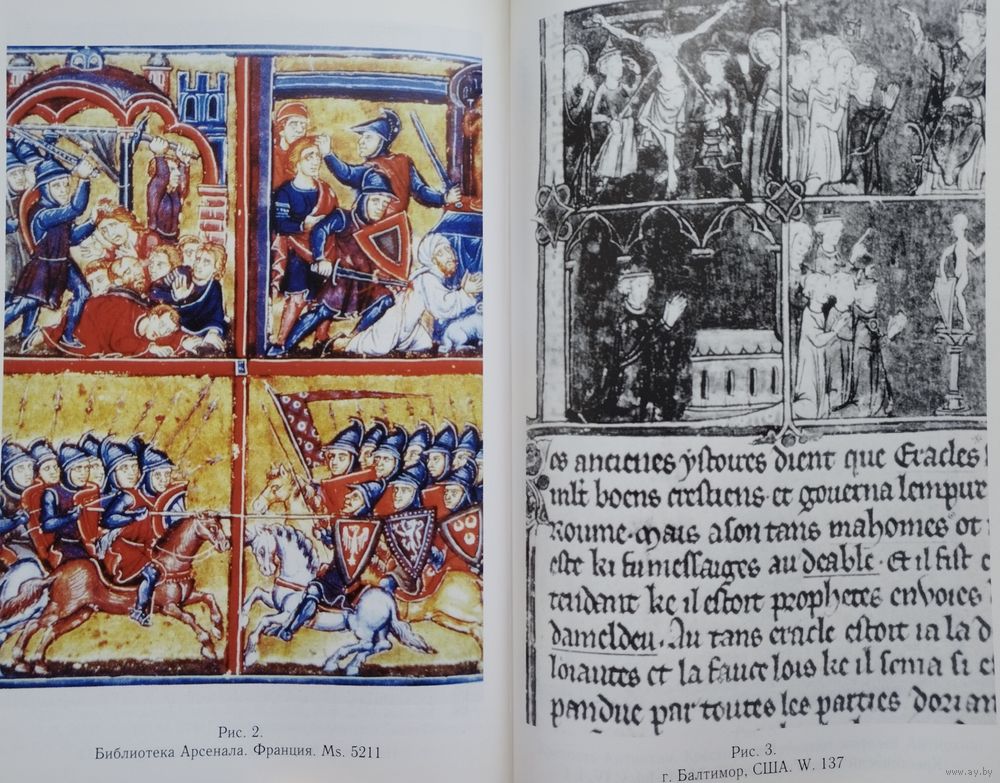 Рис. 2.
Библиотека Арсенала. Франция. Ms. 5211
es ancienes ystoires dient que Eracles
mlt boens crestiens· et gouerna lempire
Roume· Mais a son tans mahomes ot
este ki fu messaiges au deable· Et il fist
tendant ke il estoit prophetes enuoies
dameldeu, Au tans eracle estoit ia la d
loiautes et la fauce lois ke il sema si e
pandue par toutes les parties dorian
Рис. 3.
г. Балтимор, США. W. 137
www.ay.by